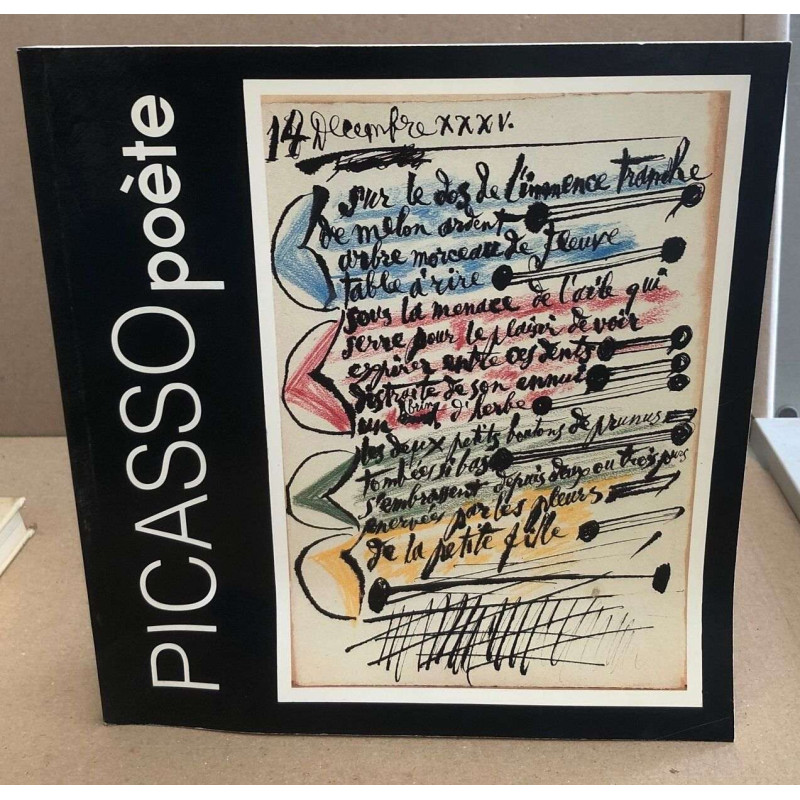 PICASSO poète
14 Decembre XXXV.
sur le dos de l'immence tranche
de melon ardent
arbre morceau de fleuve
table à rire
sous la menace de l'aile qui
serre pour le plaisir de voir
expirer entre ces dents
distraite de son ennui
un brin d'herbe
les deux petits boutons de prunus
tombées si bas
s'embrassent depuis deux ou trois jours
enervées par les pleurs
de la petite fille